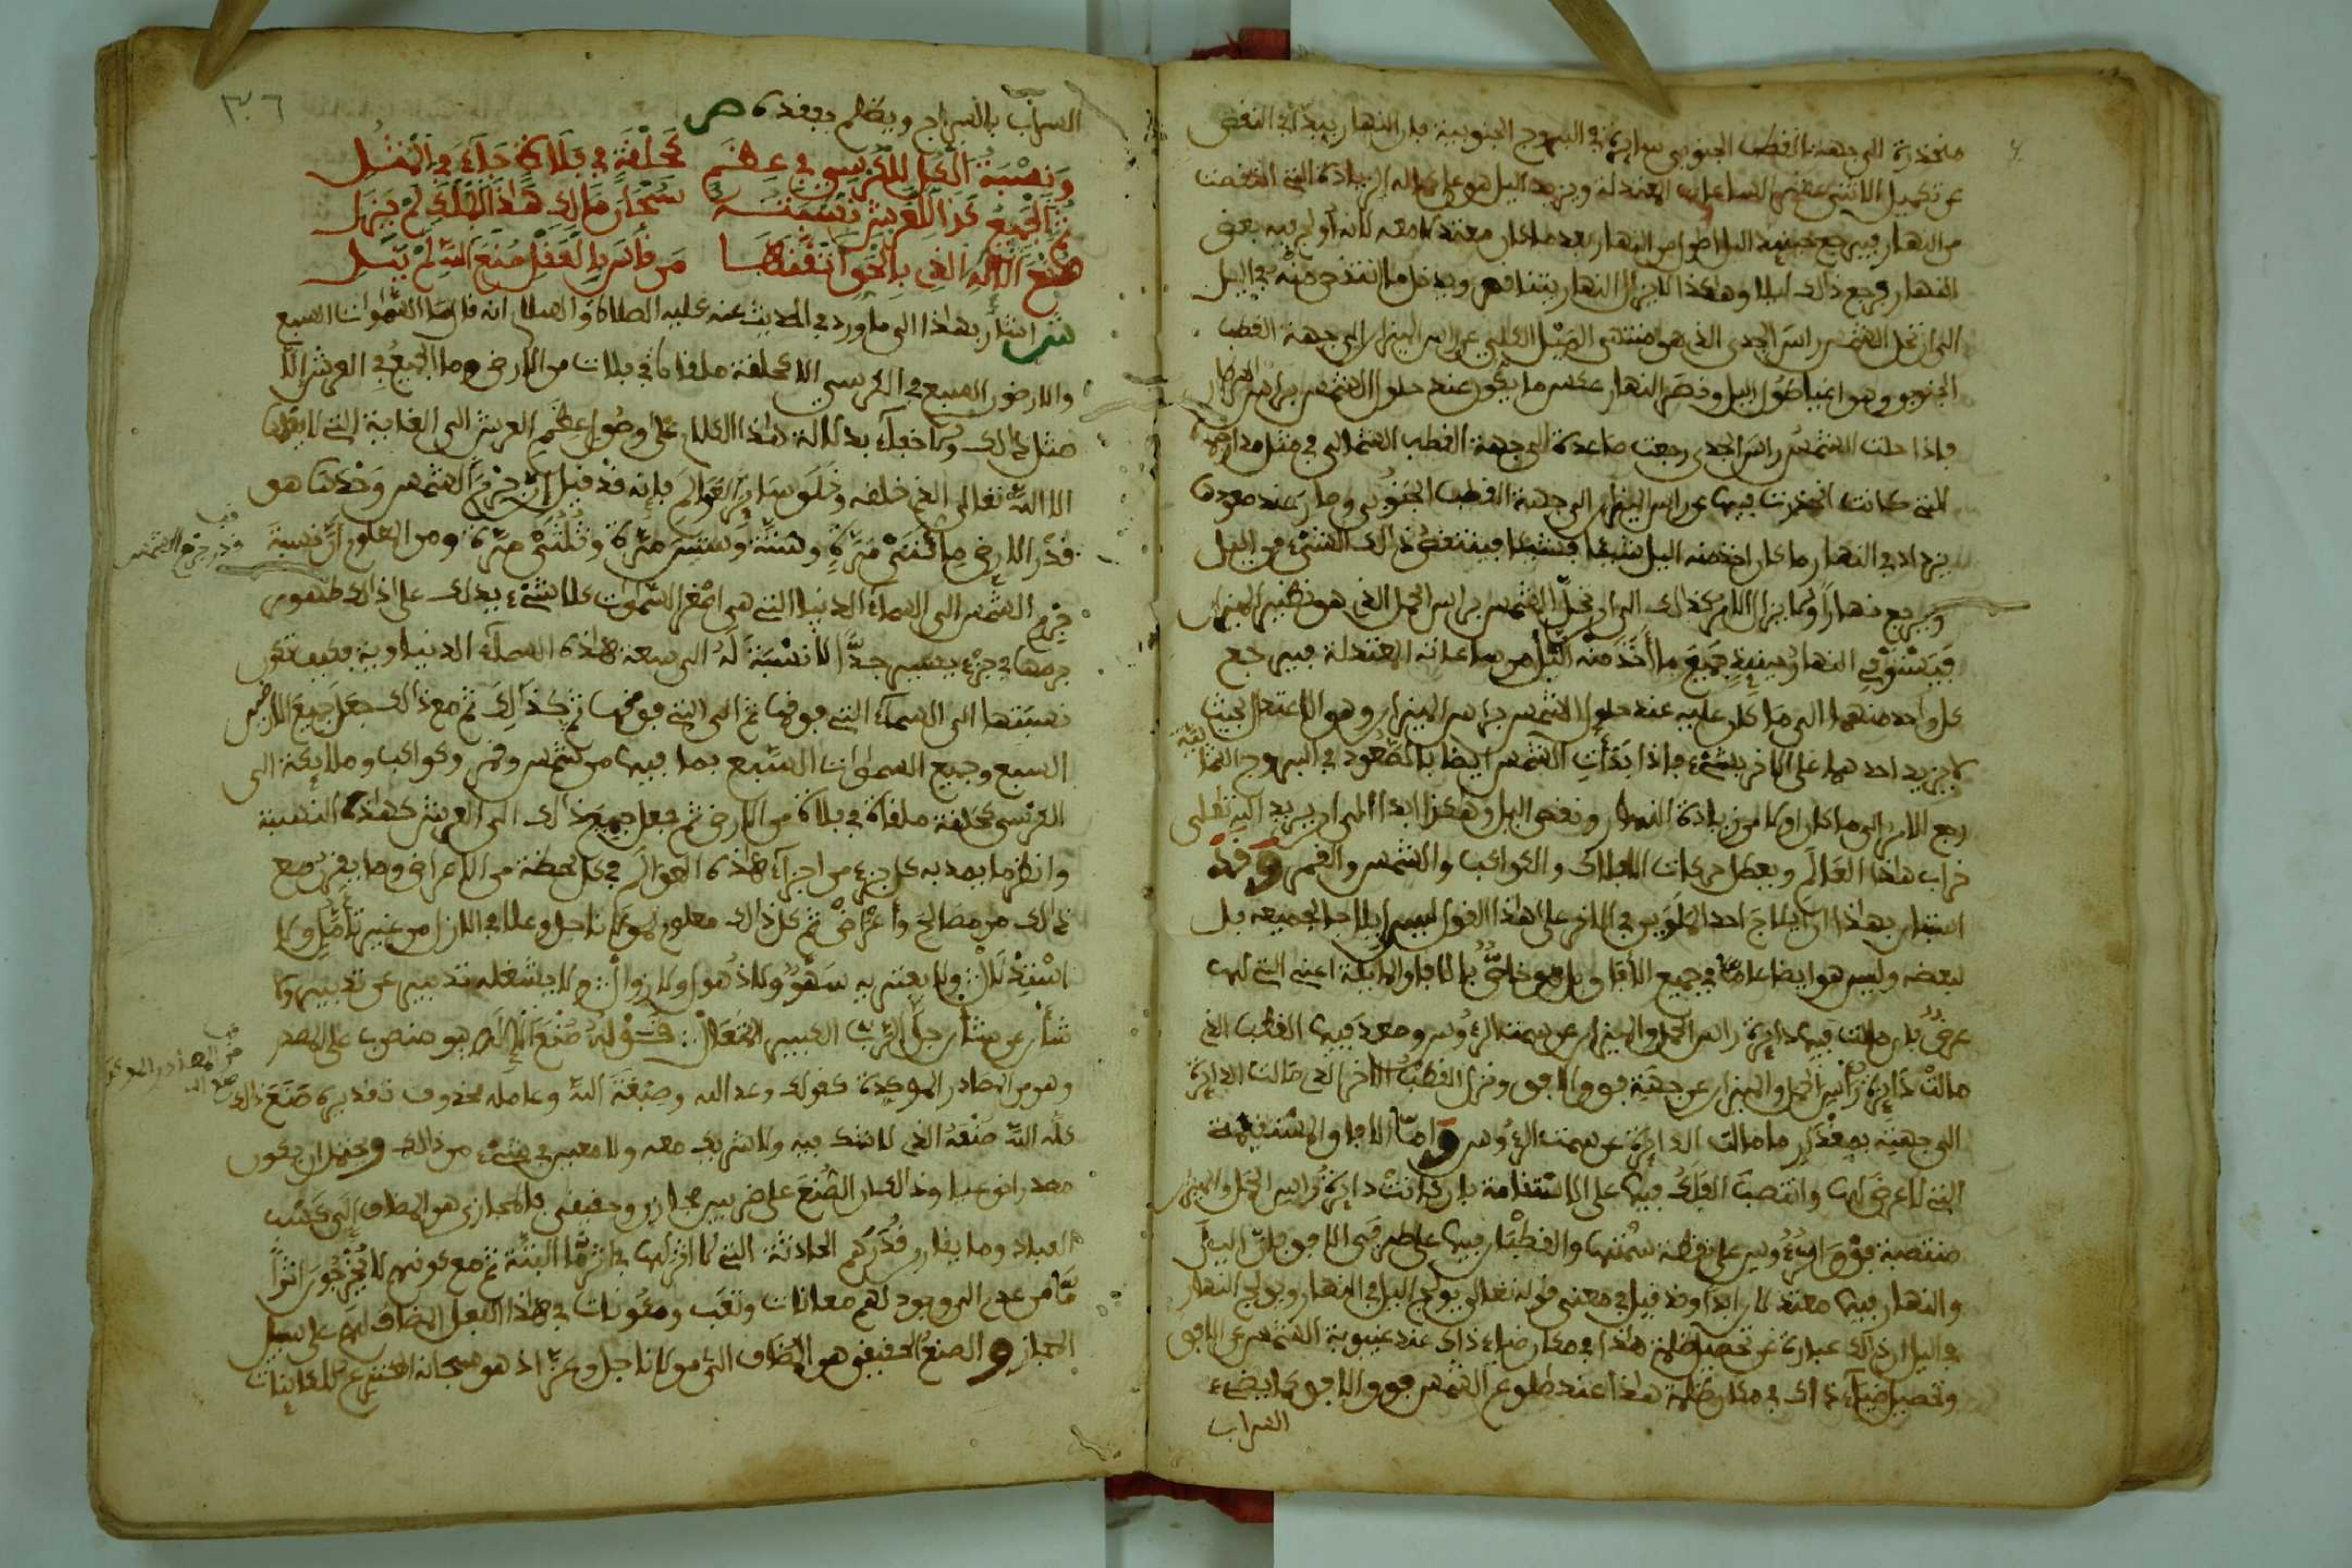 منحدرة الى جهة القطب الجنوبي سايرة في البروج الجنوبية بان النهار يبدأ في النقص
عن تكميل الاثنتى عشرة الساعات المعتدلة ويزيد اليل هو على تلك الزيادة التي انتقصت
من النهار فيرجع حينئذ اليل اطول من النهار بعد ما كان معتدلا معه لانه أولج فيه بعض
النهار فرجع ذالك ليلا وهاكذا لا يزال النهار يتناقص ويدخل ما انتقص منه في اليل
الى ان تحل الشمس راس الجدي الذي هو منتهى الميل الكلي عن راس الميزان الى جهة القطب
الجنوبي وهو غياية طول اليل وقصر النهار عكس ما يكون عند حلول الشمس براس السرطان
فاذا حلت الشمس راس الجدي رجعت صاعدة الى جهة القطب الشمالي في مثل مدارها
التي كانت انحدرت فيها عن راس الميزان الى جهة القطب الجنوبي وصار عند صعودها
يزداد في النهار ما كان اخذ منه اليل شيئا فشيئا فينتقص ذالك الشيء من اليل
ويرجع نهارا ولا يزال الامر كذالك الى ان تحل الشمس براس الحمل الذي هو نظير الميزان
فيستوفي النهار حينئذ جميع ما أخذ منه اليل من ساعاته المعتدلة فيرجع
كل واحد منهما الى ما كان عليه عند حلول الشمس براس الميزان وهو الاعتدال بحيث
لا يزيد احدهما على الاخر بشيء فاذا بدأت الشمس ايضا بالصعود في البروج الشمالية
رجع الامر الى ما كان اولا من زيادة النهار ونقص اليل وهاكذا ابدا الى ان يريد الله تعلى
خراب هاذا العالم ويعطل حركات الافلاك والكواكب والشمس والقمر وقد
استبان بهاذا ان ايلاج احد الملوين في الاخر على هاذا القول ليس ايلاجا لجميعه بل
لبعضه وليس هو ايضا عاما في جميع الآفاق بل هو خاص بالآفاق المايلة اعني التي لها
عرض بان مالت فيها دايرة راس الحمل والميزان عن سمت الرءوس وصعد فيها القطب الذي
مالت دايرة راس الحمل والميزان عن جهته فوق الافق ونزل القطب الآخر الذي مالت الدايرة
الى جهته بمقدار ما مالت الدايرة عن سمت الرءوس واما الآفاق المستقيمة
التي لا عرض لها وانتصب الفلك فيها على الاستقامة بان كانت دايرة راس الحمل والميزان
منتصبة فوق الرءوس على نقطة سمتها والقطبان فيها على طرفي الافق فان اليل
والنهار فيها معتدلان ابدا وقد قيل في معنى قوله تعالى يولج اليل في النهار ويولج النهار
في اليل ان ذالك عبارة عن تحصيل ظلمة هاذا في مكان ضياء ذاك عند غيبوبة الشمس عن الافق
وتحصيل ضياء ذاك في مكان ظلمة هاذا عند طلوع الشمس فوق الافق كما يضيء
السراب
٣٦
السراب بالسراج ويظلم بفقده ص
ونسبة الكل للكرسي في عظم كحلقة في فلاة جاء في المثل
ثم الجميع كذا للعرش نسبته سبحان مالك هاذا الملك لم يزل
صنع الاله الذي بالحق اتقنها من قاس بالعقل صنع الله لم ينل
ش اشار بهاذا الى ما ورد في الحديث عنه عليه الصلاة والسلام انه قال ما السموات السبع
والارضون السبع في الكرسي الا كحلقة ملقاة في فلات من الارض وما الجميع في العرش الا
مثل ذالك ولا خفاء بدلالة هاذا الكلام على وصول عظم العرش الى الغاية التي لا يعلمها
الا الله تعالى الذي خلقه وخلق ساير العوالم فإنه قد قيل ان جرم الشمس وحدها هو
قدر الارض مائتي مرة وستة وستين مرة وثلثي مرة ومن المعلوم ان نسبة
جرم الشمس الى السماء الدنيا التي هي اصغر السموات كلا شيء يدلك على ذالك ظهور
جرمها في جزء يسير جدا لا نسبة له الى سعة هاذه السماء الدنيا وية فكيف تكون
نسبتها الى السماء التي فوقها ثم الى التي فوقها ثم كذالك ثم مع ذالك جعل جميع الارضين
السبع وجميع السموات السبع بما فيها من شمس وقمر وكواكب وملايكة الى
الكرسي كحلقة ملقاة في فلاة من الارض ثم جعل جميع ذالك الى العرش كهاذه النسبة
وانظر ما يمد به كل جزء من اجزاء هاذه العوالم في كل لحظة من الاعراض وما يقترن مع
ذالك من مصالح وأغراض ثم كل ذالك معلوم لمولانا جل وعلا في الازل من غير تأمل ولا
استدلال ولا يعتريه سهو ولا ذهول ولا زوال ولا يشغله تدبير عن تدبير ولا
شأن عن شأن جل الرب الكبير المتعال قوله صنع الاله هو منصوب على المصدر
وهو من المصادر الموكدة كقولك وعد الله وصبغة الله وعامله محذوف تقديره صنع ذالك
كله الله صنعه الذي لا شك فيه ولا شريك معه ولا معين في شيء من ذالك ويحتمل ان يكون
مصدرا نوعيا وذالك ان الصنع على ضربين مجازي وحقيقي فالمجازي هو المضاف الى كسب
العباد وما يقارن قدرتهم الحادثة التي لا اثر لها في اثر ما البتة ثم مع كونهم لا يخرجون اثرا
ما من عدم الى وجود لهم معانات وتعب ومعونات في هاذا الفعل المضاف لهم على سبيل
المجاز والصنع الحقيقي هو المضاف الى مولانا جل وعز اذ هو سبحانه المخترع للكاينات
قف
قدر جرم الشمس
قف
من المصادر الموكدة